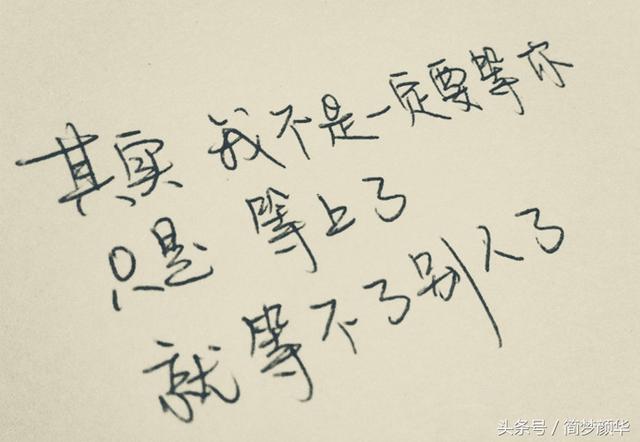 其实 我不是一定要等你
只是 等上了
就等不了别人了
头条号 / 简梦颜华